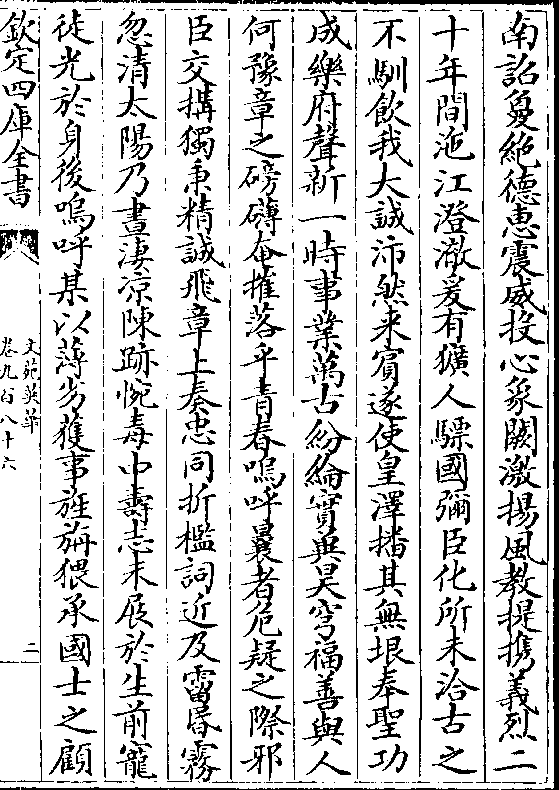 南詔敻絶德恵震威投心象闕激揚風教提携義烈二
十年間沲江澄澈爰有獷人驃國彌臣化所未洽古之
不馴飲我大誠沛然来賓遂使皇澤播其無垠奉聖功
成樂府聲新一時事業萬古紛綸實與昊穹福善與人
何豫章之磅礴奄摧落乎青春嗚呼曩者危疑之際邪
臣交搆獨秉精誠飛章上奏忠同折檻詞近及霤昏霧
忽清太陽乃晝淒涼陳跡惋毒中壽志未展於生前寵
徒光於身後嗚呼某以薄劣獲事旌旃猥承國士之顧
欽定四庫全書
文苑英華
卷九百八十六
二